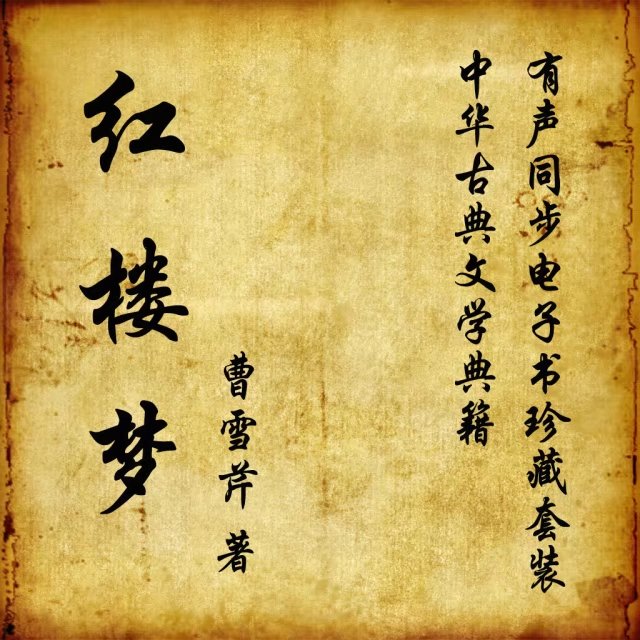 有声同步电子书珍藏套装
中华古典文学典籍
曹雪芹 著
红楼梦